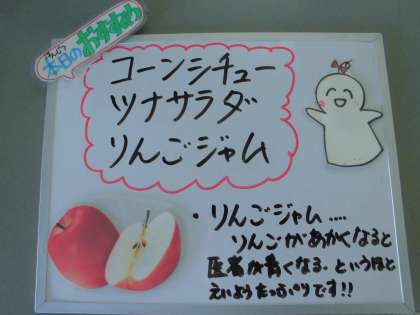 本日のおすすめ
コーンシチュー
ツナサラダ
りんごジャム
・りんごジャム‥‥
りんごがあかくなると
医者が青くなる。というほど
えいようたっぷりです!!